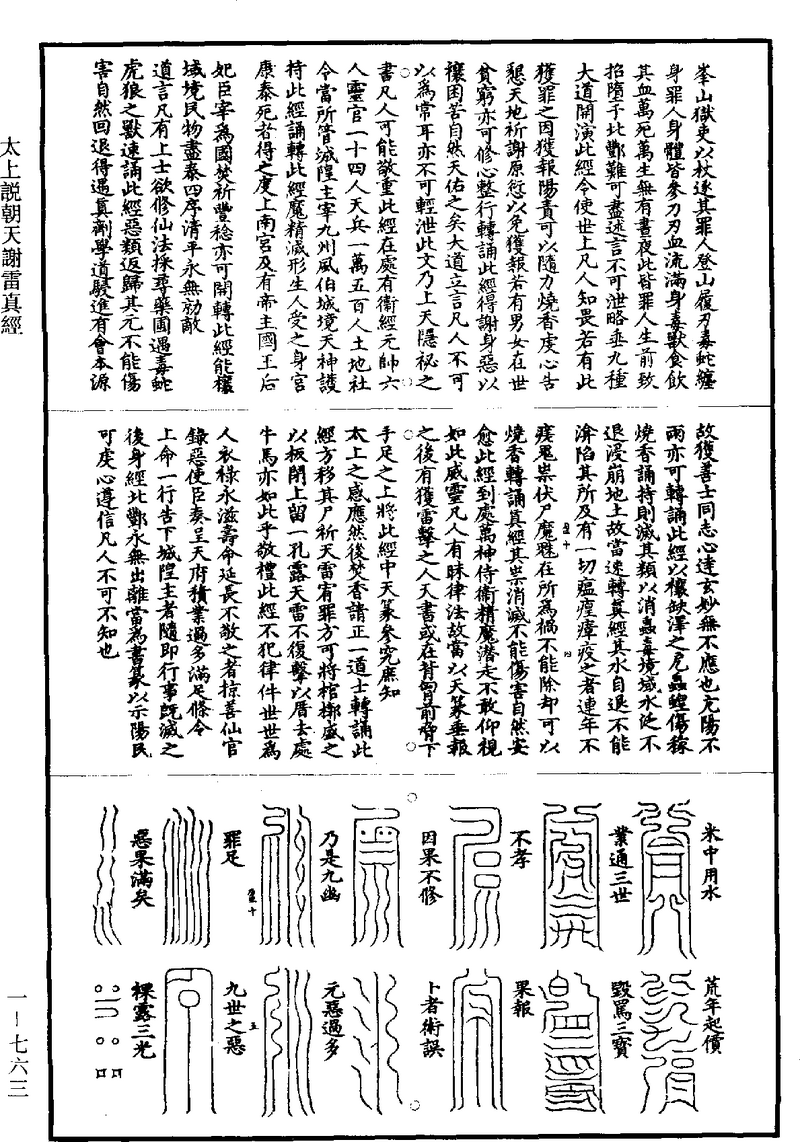 太上說朝天謝雷真經
一—七六三
峯山獄吏以杖逐其罪人登山履刃毒蛇纏
身罪人身體皆參刀刃血流滿身毒獸食飲
其血萬死萬生無有晝夜此皆罪人生前致
招墮于北酆難可盡述言不可泄略垂九種
大道開演此經令使世上凡人知畏若有此
獲罪之因獲報陽責可以隨力燒香虔心告
懇天地祈謝原愆以免獲報若有男女在世
貧窮亦可修心整行轉誦此經得謝身惡以
禳困苦自然天佑之矣大道立言凡人不可
以為常耳亦不可輕泄此文乃上天隱祕之
書凡人可能敬重此經在處有衛經元帥六
人靈官一十四人天兵一萬五百人土地社
令當所管城隍主宰九州風伯城境天神護
持此經誦轉此經魔精滅形生人受之身宮
康泰死者得之度上南宮及有帝主國王后
妃臣宰為國焚祈豐稔亦可開轉此經能禳
域境民物盡泰四序清平永無勍敵
道言凡有上士欲修仙法採尋藥圃遇毒蛇
虎狼之獸速誦此經惡類返歸其元不能傷
害自然回退得遇真劑學道駿進有會本源
故獲善士同志心達玄妙無不應也亢陽不
雨亦可轉誦此經以禳缺澤之厄蟲蝗傷稼
燒香誦持則滅其類以消蟲毒境域水泛不
退浸崩地土故當速轉真經其水自退不能
渰陷其所及有一切瘟瘴瘧疫之者連年不
痊鬼祟伏尸魔魅在所為禍不能除却可以
燒香轉誦真經其祟消滅不能傷害自然安
愈此經到處萬神侍衛精魔潛走不敢仰視
如此威靈凡人有昧律法故當以天篆垂報
之後有獲雷擊之人天書或在背胷前脅下
手足之上將此經中天篆參究照知
太上之感應然後焚香請正一道士轉誦此
經方移其尸祈天雷宥罪方可將棺槨盛之
以板閉上留一孔露天雷不復擊以厝去處
牛馬亦如此乎敬禮此經不犯律件世世為
人衣祿永滋壽命延長不敬之者掠善仙官
錄惡使臣奏呈天府積業過多滿足條令
上命一行告下城隍主者隨即行事既滅之
後身經北酆永無出離當為書篆以示陽民
可虔心遵信凡人不可不知也
米中用水
業通三世
不孝
因果不修
乃是九幽
罪足
惡果滿矣
荒年起價
毀罵三寶
果報
卜者術誤
元惡過多
九世之惡
裸露三光